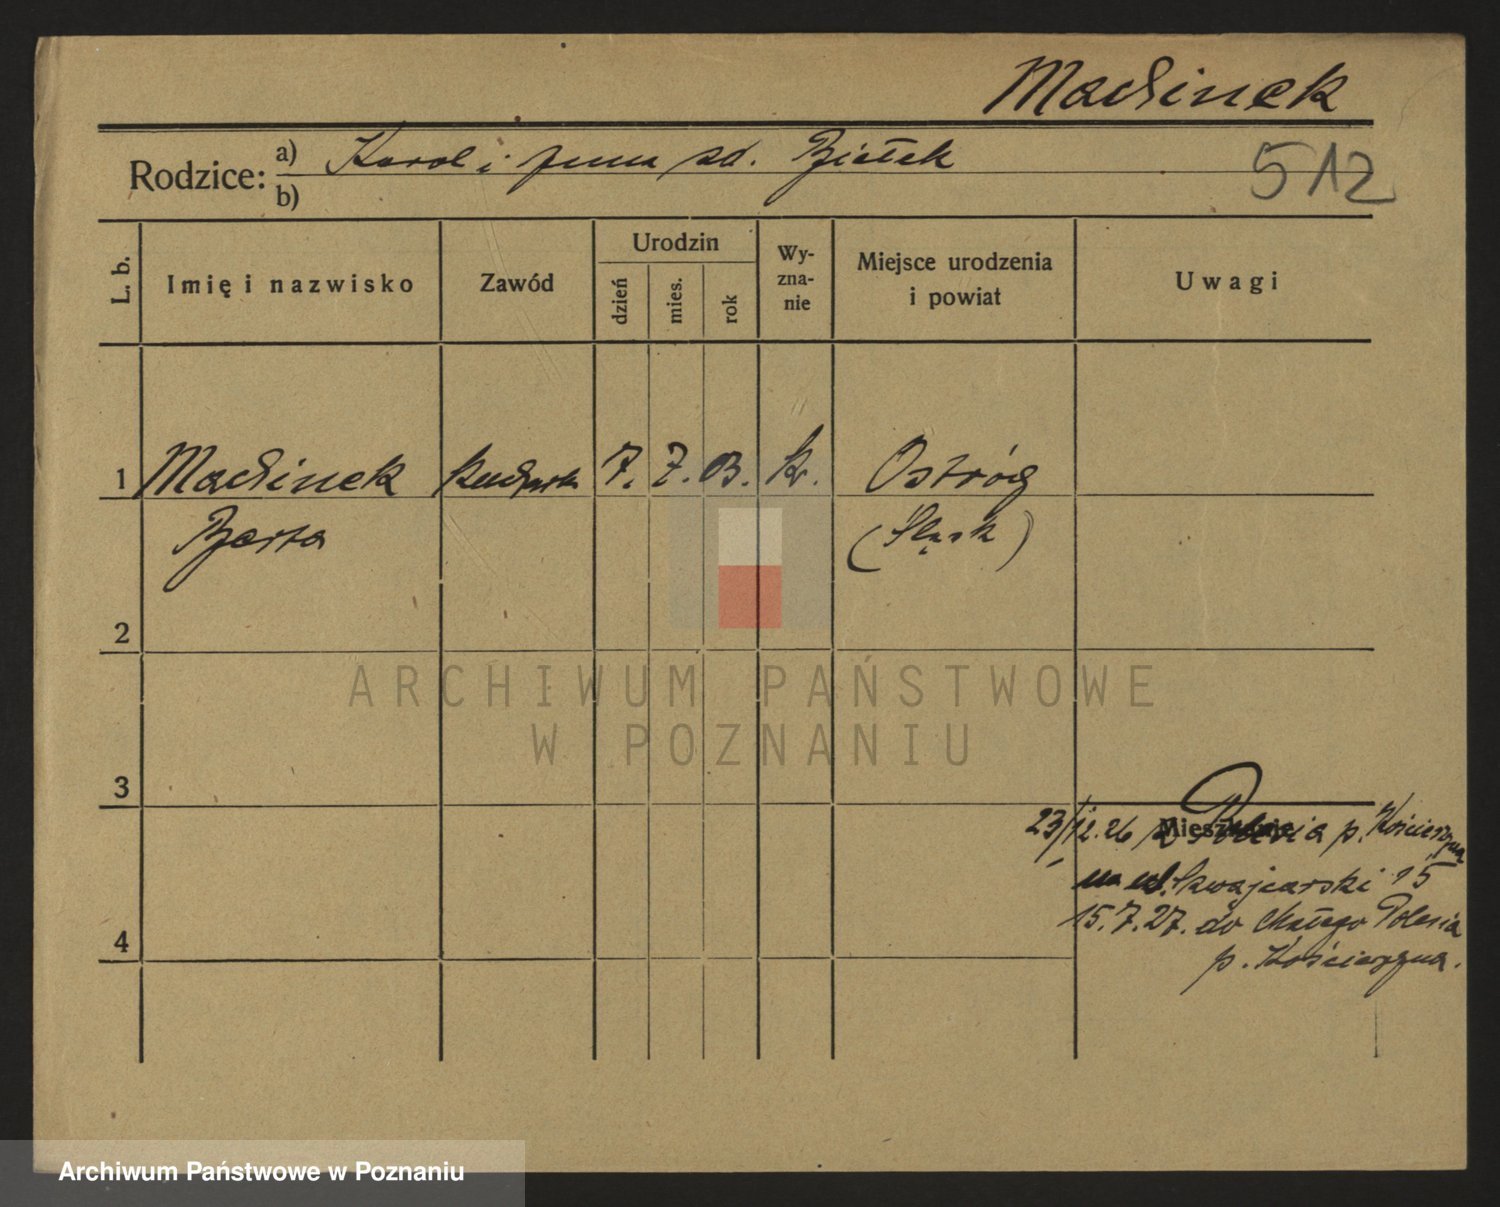 Machinek
Rodzice: a) Karol i Anna zd. Białek
b)
512
L. b.
Imię i nazwisko
Zawód
Urodzin
dzień
mies.
rok
Wy-
zna-
nie
Miejsce urodzenia
i powiat
Uwagi
1 Machinek kucharka 7. 7. 03. kr. Ostróg
Berta (Śląsk)
2
3
Mieszkanie
23/12.26 z Polesia p. Kościerzyna
na ul. Szwajcarski 15
15.7.27. do Małego Polesia
4
p. Kościerzyna.
ARCHIWUM PAŃSTWOWE
W POZNANIU
Archiwum Państwowe w Poznaniu